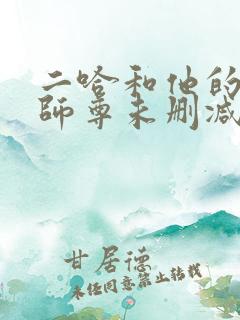 二哈和他的
師尊未刪減
甘居德
未任同意禁止转载